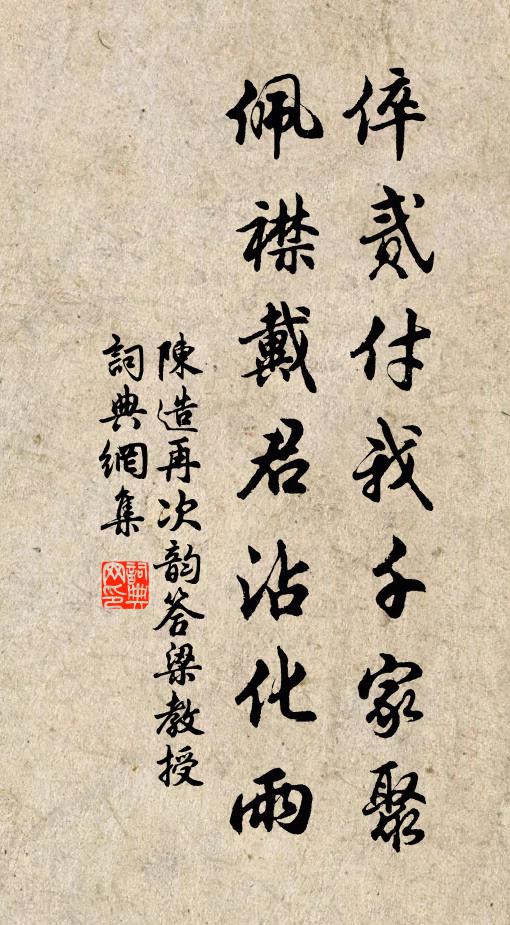 倅貳付我千家聚
佩襟戴君沾化雨
陳造再次韵答梁教授
詞典網集
詞典网印